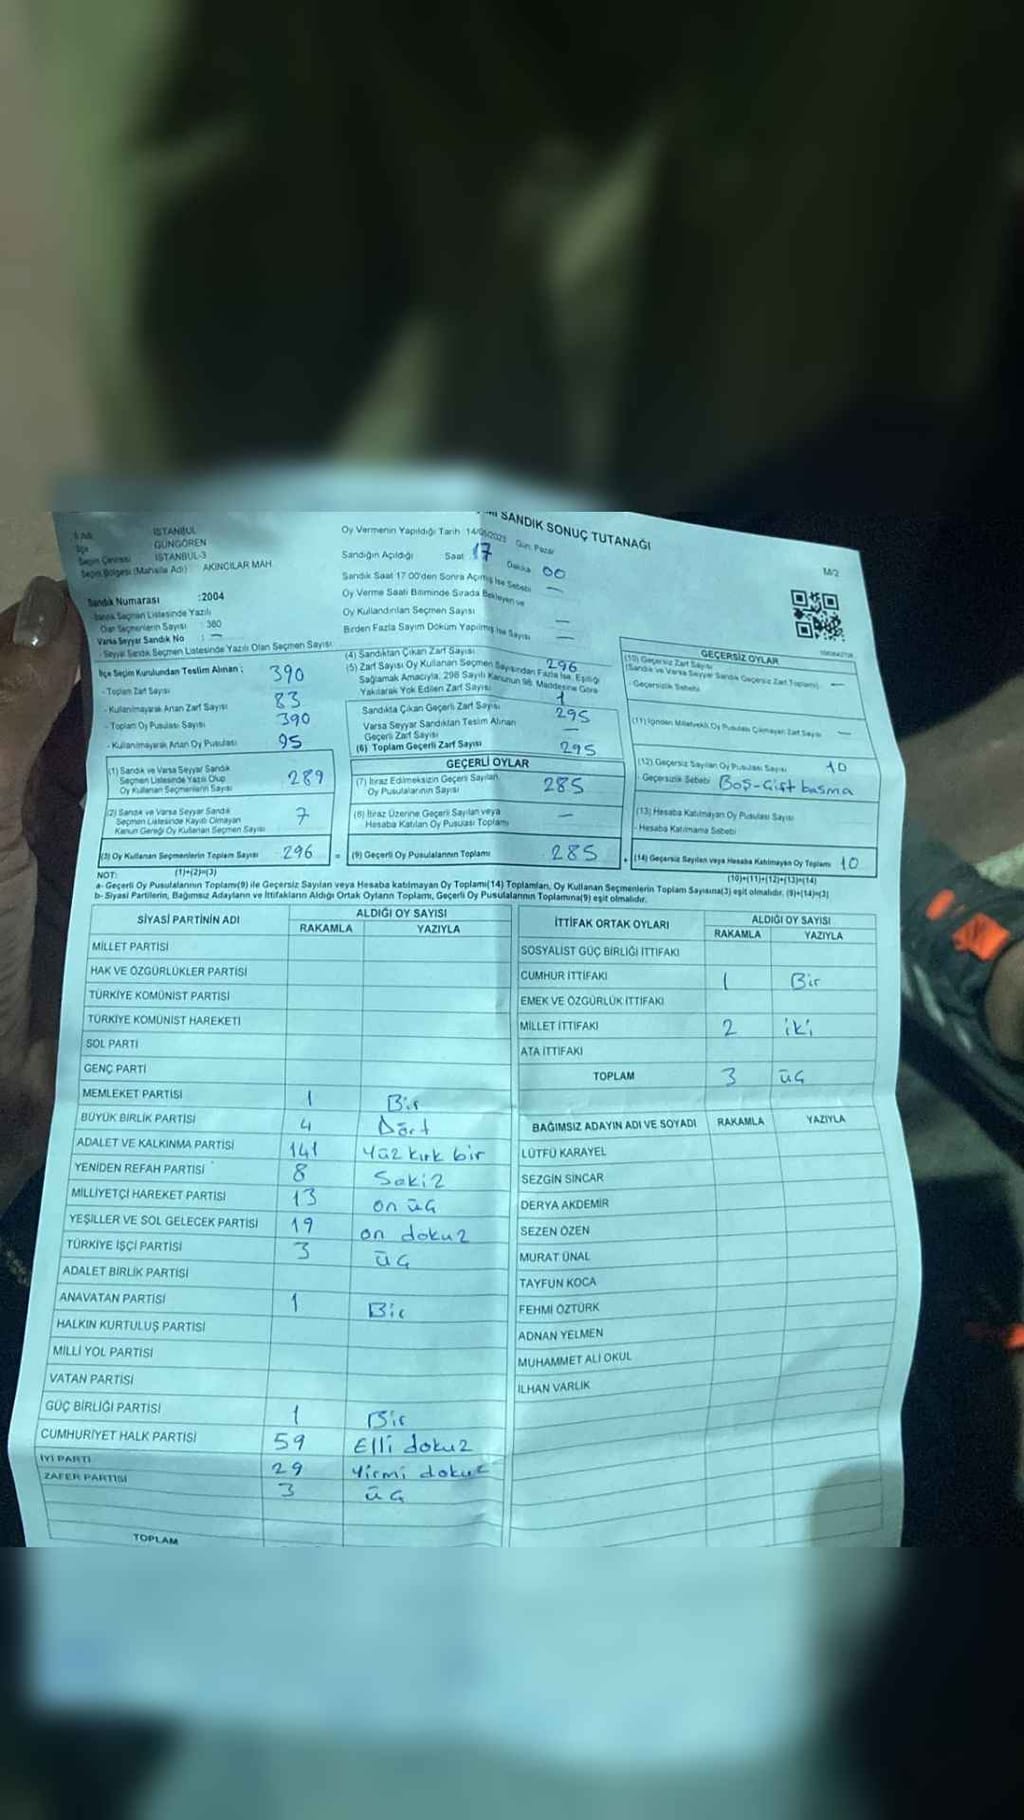 SANDIK SONUÇ TUTANAĞI
İSTANBUL
İlçe GÜNGÖREN
Seçim Çevresi İSTANBUL-3
Seçim Bölgesi (Mahalle Adı) AKINCILAR MAH.
Sandık Numarası :2004
Sandık Seçmen Listesinde Yazılı
Olan Seçmenlerin Sayısı : 380
Varsa Seyyar Sandık No : —
- Seyyar Sandık Seçmen Listesinde Yazılı Olan Seçmen Sayısı
Oy Vermenin Yapıldığı Tarih 14/05/2023 Gün: Pazar
Sandığın Açıldığı Saat 17 Dakika 00
Sandık Saat 17.00'den Sonra Açılmış İse Sebebi —
Oy Verme Saati Bitiminde Sırada Bekleyen ve
Oy Kullandırılan Seçmen Sayısı —
Birden Fazla Sayım Döküm Yapılmış İse Sayısı —
M/2
İlçe Seçim Kurulundan Teslim Alınan ;
- Toplam Zarf Sayısı 390
- Kullanılmayarak Artan Zarf Sayısı 83
- Toplam Oy Pusulası Sayısı 390
- Kullanılmayarak Artan Oy Pusulası 95
(1) Sandık ve Varsa Seyyar Sandık
Seçmen Listesinde Yazılı Olup
Oy Kullanan Seçmenlerin Sayısı 289
(2) Sandık ve Varsa Seyyar Sandık
Seçmen Listesinde Kayıtlı Olmayan
Kanun Gereği Oy Kullanan Seçmen Sayısı 7
(3) Oy Kullanan Seçmenlerin Toplam Sayısı 296
(1)+(2)=(3)
(4) Sandıktan Çıkan Zarf Sayısı 296
(5) Zarf Sayısı Oy Kullanan Seçmen Sayısından Fazla İse, Eşitliği
Sağlamak Amacıyla, 298 Sayılı Kanunun 98. Maddesine Göre
Yakılarak Yok Edilen Zarf Sayısı 1
Sandıkta Çıkan Geçerli Zarf Sayısı 295
Varsa Seyyar Sandıktan Teslim Alınan
Geçerli Zarf Sayısı —
(6) Toplam Geçerli Zarf Sayısı 295
GEÇERLİ OYLAR
(7) İtiraz Edilmeksizin Geçerli Sayılan
Oy Pusulalarının Sayısı 285
(8) İtiraz Üzerine Geçerli Sayılan veya
Hesaba Katılan Oy Pusulası Toplamı —
= (9) Geçerli Oy Pusulalarının Toplamı 285
GEÇERSİZ OYLAR
(10) Geçersiz Zarf Sayısı
(Sandık ve Varsa Seyyar Sandık Geçersiz Zarf Toplamı) —
- Geçersizlik Sebebi
(11) İçinden Milletvekili Oy Pusulası Çıkmayan Zarf Sayısı —
(12) Geçersiz Sayılan Oy Pusulası Sayısı 10
- Geçersizlik Sebebi Boş-Çift basma
(13) Hesaba Katılmayan Oy Pusulası Sayısı
- Hesaba Katılmama Sebebi
+ (14) Geçersiz Sayılan veya Hesaba Katılmayan Oy Toplamı 10
(10)+(11)+(12)+(13)=(14)
NOT:
a- Geçerli Oy Pusulalarının Toplamı(9) ile Geçersiz Sayılan veya Hesaba katılmayan Oy Toplamı(14) Toplamları, Oy Kullanan Seçmenlerin Toplam Sayısına(3) eşit olmalıdır. (9)+(14)=(3)
b- Siyasi Partilerin, Bağımsız Adayların ve İttifakların Aldığı Ortak Oyların Toplamı, Geçerli Oy Pusulalarının Toplamına(9) eşit olmalıdır.
SİYASİ PARTİNİN ADI ALDIĞI OY SAYISI
RAKAMLA YAZIYLA
MİLLET PARTİSİ
HAK VE ÖZGÜRLÜKLER PARTİSİ
TÜRKİYE KOMÜNİST PARTİSİ
TÜRKİYE KOMÜNİST HAREKETİ
SOL PARTİ
GENÇ PARTİ
MEMLEKET PARTİSİ 1 Bir
BÜYÜK BİRLİK PARTİSİ 4 Dört
ADALET VE KALKINMA PARTİSİ 141 Yüz kırk bir
YENİDEN REFAH PARTİSİ 8 Sekiz
MİLLİYETÇİ HAREKET PARTİSİ 13 on üç
YEŞİLLER VE SOL GELECEK PARTİSİ 19 on dokuz
TÜRKİYE İŞÇİ PARTİSİ 3 üç
ADALET BİRLİK PARTİSİ
ANAVATAN PARTİSİ 1 Bir
HALKIN KURTULUŞ PARTİSİ
MİLLİ YOL PARTİSİ
VATAN PARTİSİ
GÜÇ BİRLİĞİ PARTİSİ 1 Bir
CUMHURİYET HALK PARTİSİ 59 Elli dokuz
İYİ PARTİ 29 Yirmi dokuz
ZAFER PARTİSİ 3 üç
TOPLAM
İTTİFAK ORTAK OYLARI ALDIĞI OY SAYISI
RAKAMLA YAZIYLA
SOSYALİST GÜÇ BİRLİĞİ İTTİFAKI
CUMHUR İTTİFAKI 1 Bir
EMEK VE ÖZGÜRLÜK İTTİFAKI
MİLLET İTTİFAKI 2 iki
ATA İTTİFAKI
TOPLAM 3 üç
BAĞIMSIZ ADAYIN ADI VE SOYADI RAKAMLA YAZIYLA
LÜTFÜ KARAYEL
SEZGİN SİNCAR
DERYA AKDEMİR
SEZEN ÖZEN
MURAT ÜNAL
TAYFUN KOCA
FEHMİ ÖZTÜRK
ADNAN YELMEN
MUHAMMET ALİ OKUL
İLHAN VARLIK